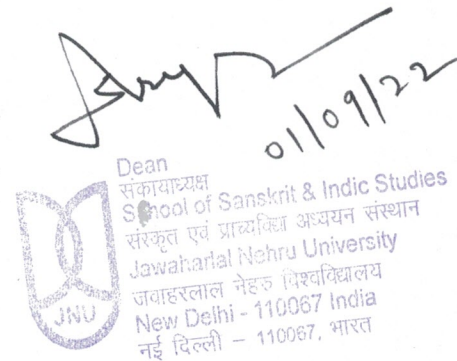 01/09/22
Dean
संकायाध्यक्ष
School of Sanskrit & Indic Studies
संस्कृत एवं प्राच्यविद्या अध्ययन संस्थान
Jawaharlal Nehru University
जवाहरलाल नेहरू विश्वविद्यालय
New Delhi - 110067 India
नई दिल्ली – 110067, भारत
JNU